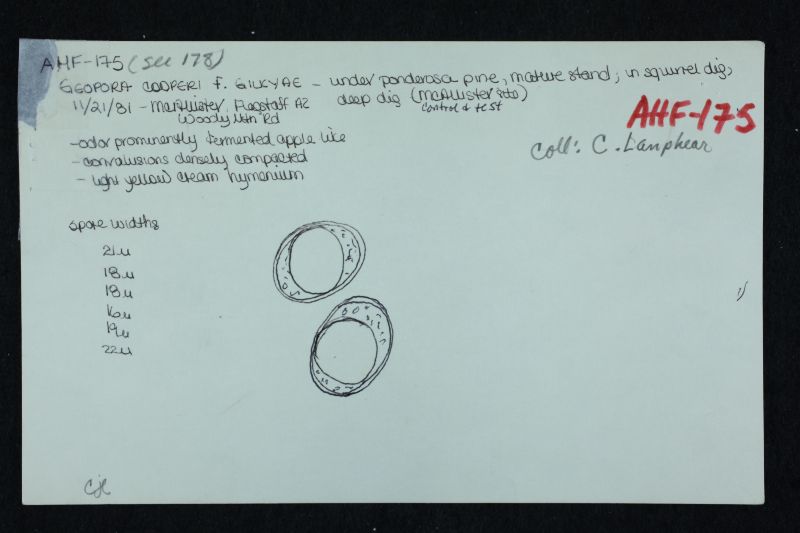 AHF-175 (see 178)
GEOPORA COOPERI f. GILKYAE - under ponderosa pine, mature stand; in squirrel dig,
11/21/81 - McAllister, Flagstaff AZ deep dig (McAllister site)
Woody Mtn Rd control & test
AHF-175
coll: C. Lanphear
-odor prominently fermented apple like
- convolusions densely compacted
- light yellow cream hymenium
spore widths
21u
18u
18u
16u
19u
22u
cjl